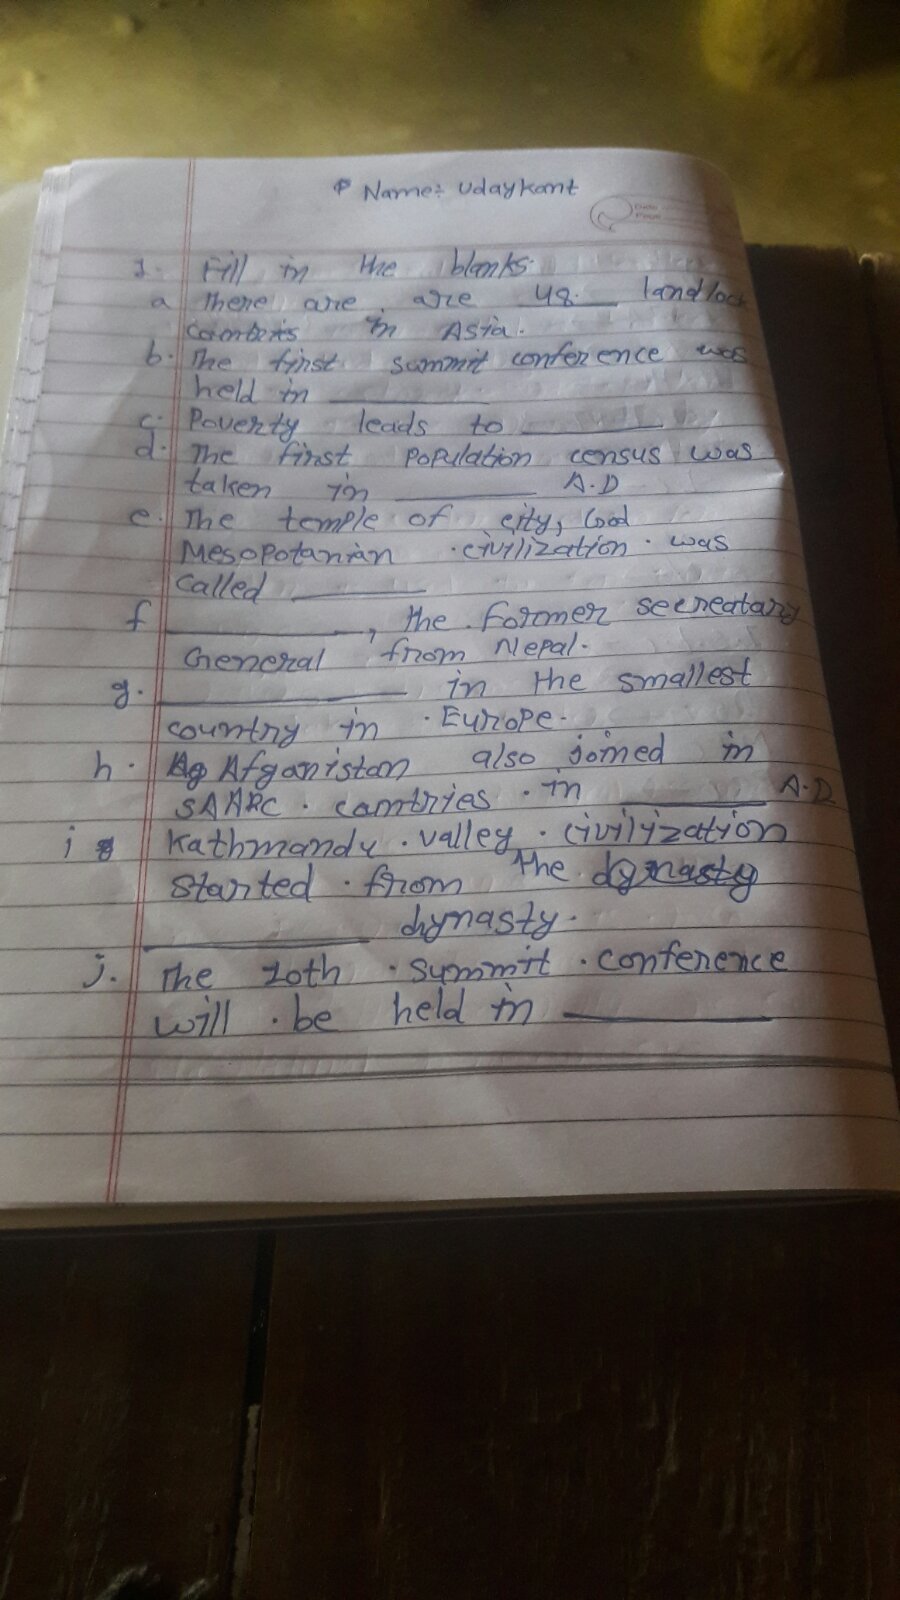 Name: Udaykant
1. Fill in the blanks.
a there are are 48. ___ landlock
countries in Asia.
b. The first summit conference was
held in ___
c. Poverty leads to ___
d. The first population census was
taken in ___ A.D
e. The temple of city, God
Mesopotanian civilization was
called ___
f ___, the former secreatary
General from Nepal.
g. ___ in the smallest
country in Europe.
h. Afganistan also joined in
SAARC camtries in ___ A.D
i Kathmandu valley civilization
started from the dynasty
___ dynasty.
j. The 20th summit conference
will be held in ___